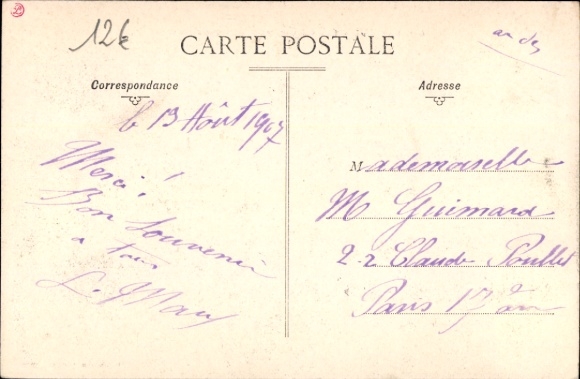 12€
CARTE POSTALE
an den
Correspondance
Adresse
le 13 Août 1907
Merci!
Bon Souvenir
a tous
Mademoiselle
M Guimard
22 Claude Pouillet
Paris 17e